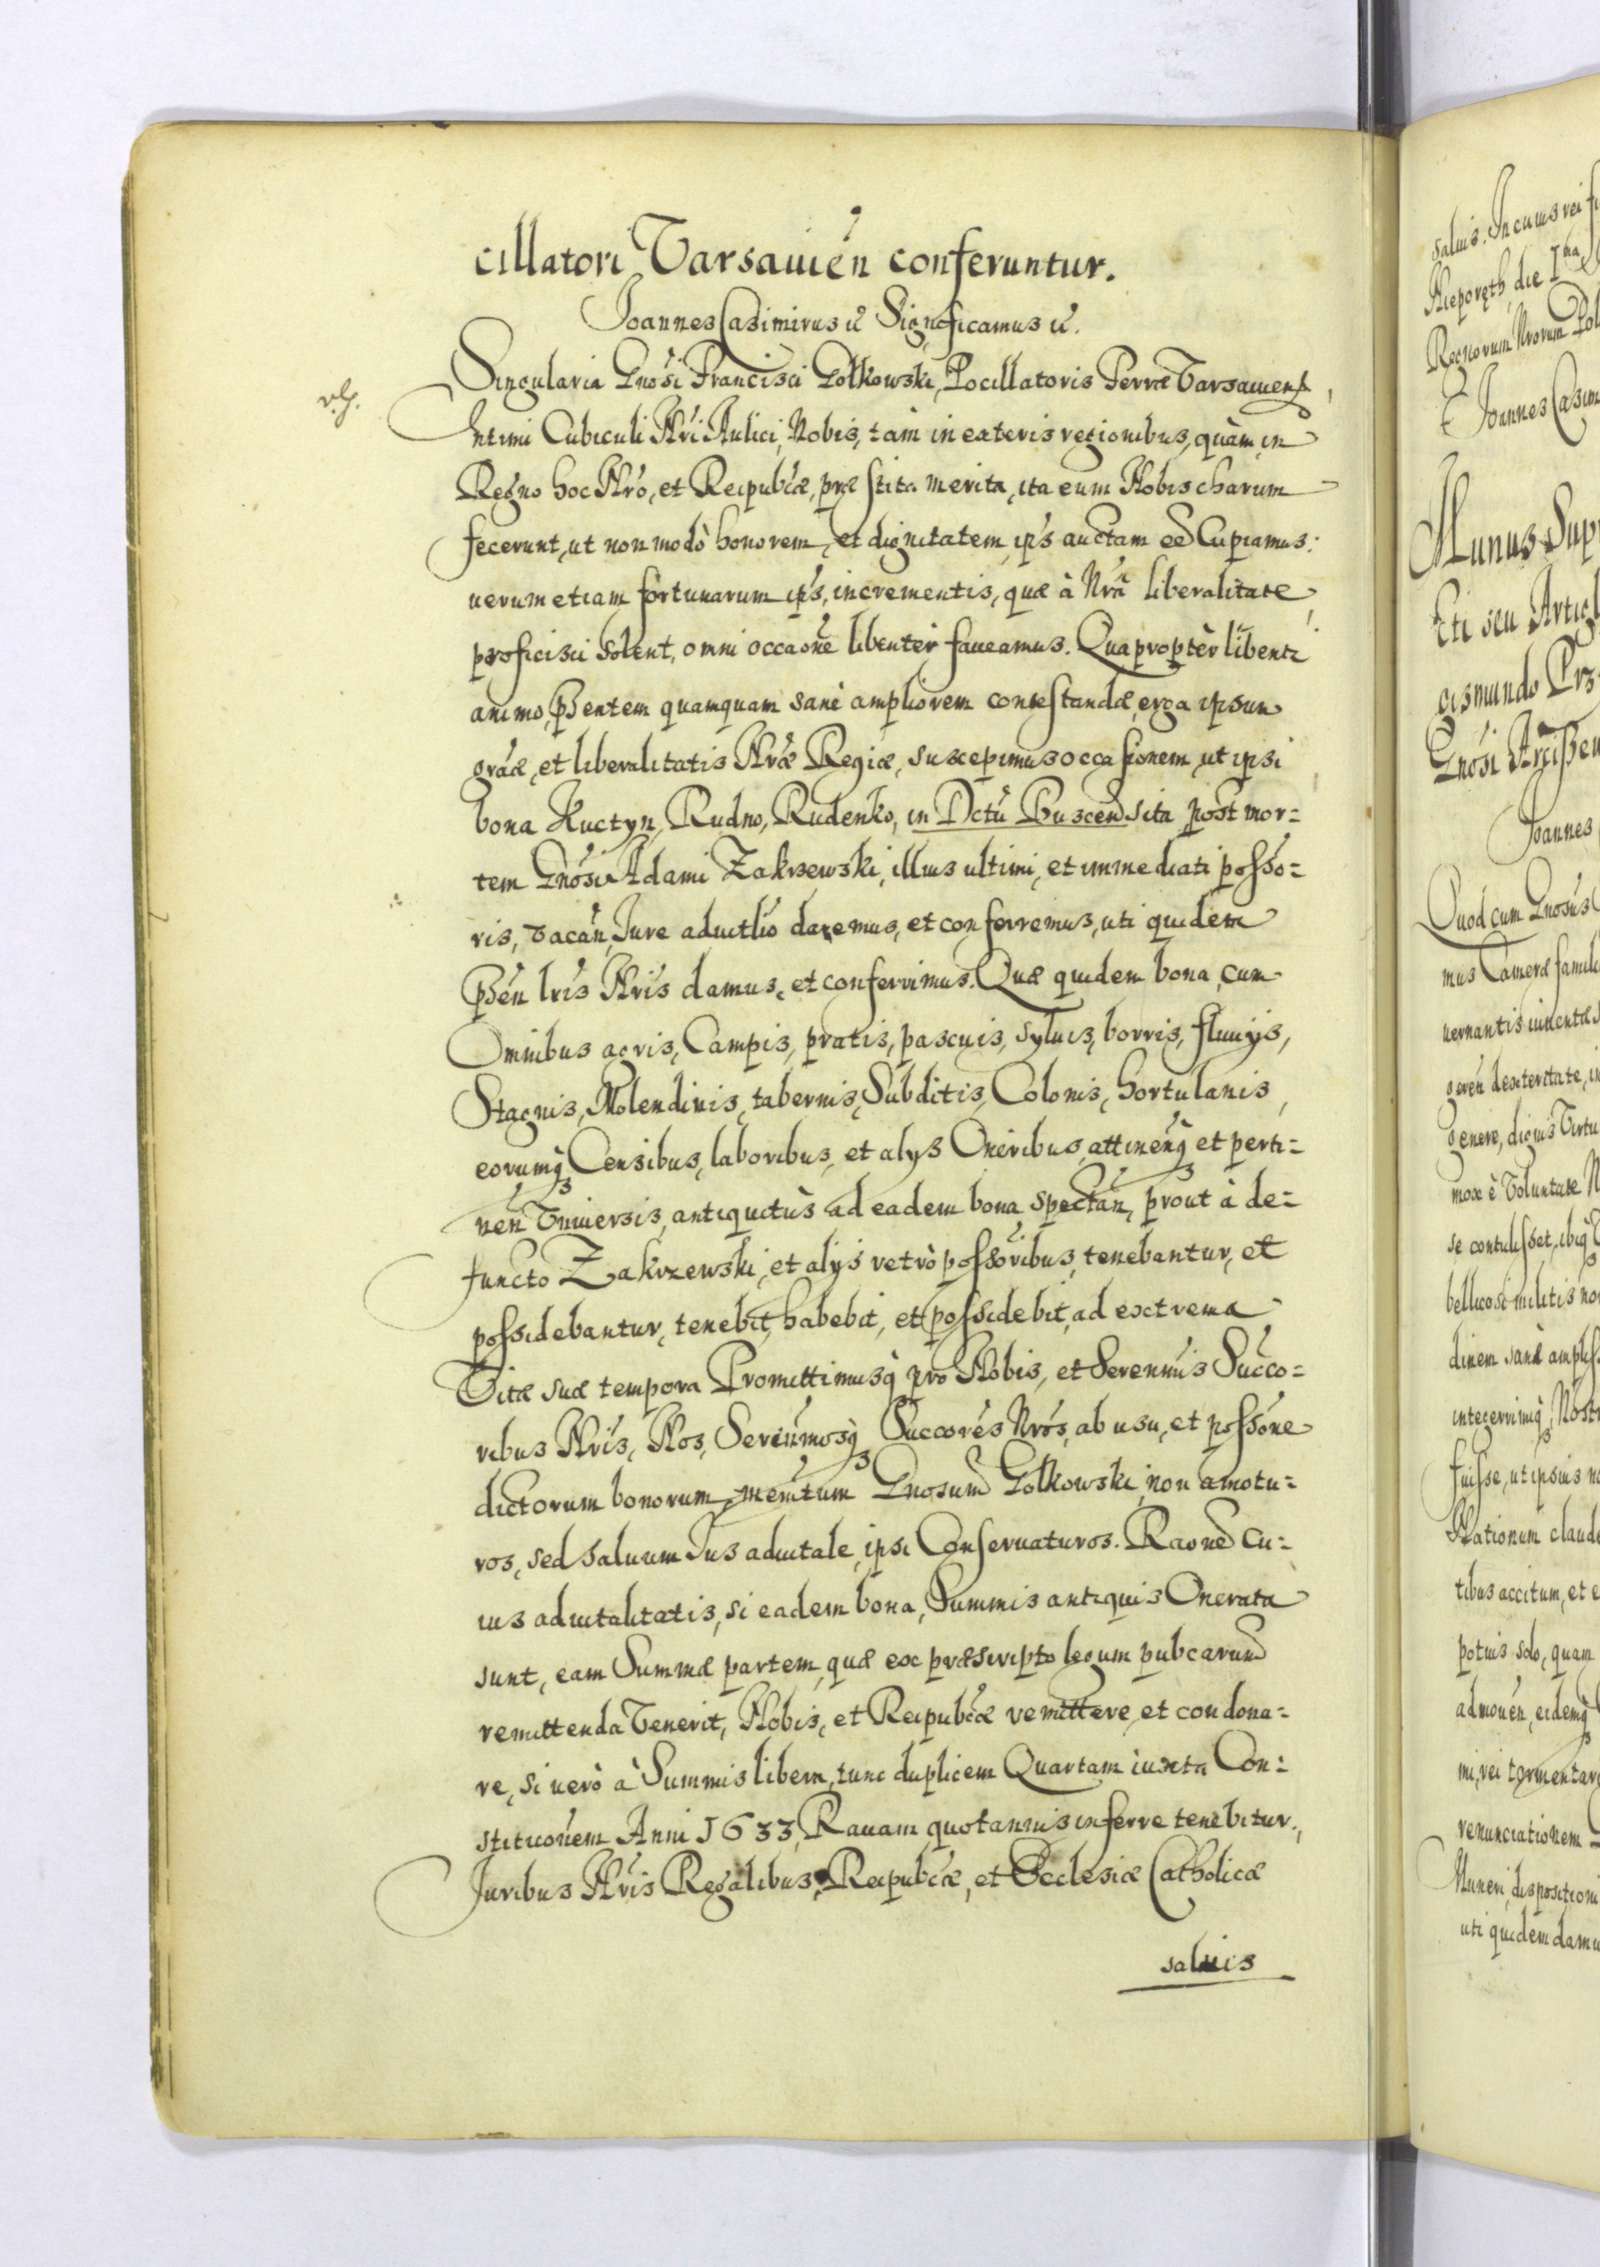 cillatori Varsavień conferuntur.
Joannes Casimirus etc Significamus etc.
Singularia Gnosi Francisci Gołkowski, Pocillatoris Terræ Varsaviens,
Intimi Cubiculi Nri Aulici, Nobis, tàm in exteris regionibus, quàm, in
Regno hoc Nro, et Reipubcæ, præstita merita, ita eum Nobis charum
fecerunt, ut non modò honorem, et dignitatem ips auctam eē Cupiamus:
uerum etiam fortunarum ips, incrementis, quæ à Nrã liberalitate,
proficisci solent, omni occaone libenter faueamus. Quapropter libenti
animo, pñtem quamquam sanè ampliorem contestandæ, erga ipsum
grãæ, et liberalitatis Nræ Regiæ, suscepimus occasionem, ut ipsi
bona Kuctyn, Rudno, Rudenko, in Dctu Buscen sita post mor=
tem Gnosi Adami Zakrzewski, illius ultimi, et immediati posso=
ris, vacań, Jure aduitlio daremus, et conferremus, uti quidem
Pñ lris Nris damus, et conferimus. Quæ quidem bona, cum
Omnibus agris, Campis, pratis, pascuis, syluis, borris, fluuijs,
Stagnis, Molendinis, tabernis, Subditis, Colonis, hortulanis,
eorumq3 Censibus, laboribus, et alys Oneribus, attineńq3 et perti=
neń Vniuersis, antiquitùs ad eadem bona spectań, prout à de=
functo Zakrzewski, et alijs retrò possoribus, tenebantur, et
possidebantur, tenebit, habebit, et possidebit, ad extrema
Vitæ suæ tempora Promittimusq3 pro Nobis, et Serennis Succo=
ribus Nris, Nos, Serenmosq3 Succores Nros, ab usu, et possone
dictorum bonorum, memtum Gnosum Gołkowski, non amotu=
ros, sed saluum Jus aduitale, ipsi Conseruaturos. Raone cu=
ius aduitalitatis, si eadem bona, Summis antiquis Onerata
sunt, eam Summæ partem, quæ ex præscripto legum pubcarum
remittenda Venerit, Nobis, et Reipubcæ remittere, et condona=
re, si uerò à Summis libera, tunc duplicem Quartam iuxta Con=
stituonem Anni 1633, Rauam quotannis inferre tenebitur.,
Juribus Nris Regalibus, Reipubcæ, et Ecclesiæ Catholicæ
saluis
saluis. In cuius rei
Nieporęth, die Ima
Regnorum Nrorum Pol
Joannes Casim
Munus Sup
cti seu Articl
gismundo Prz
Gnosi
Joannes
Quod cum Gnosus
mus Cameræ famili
uernantis iuuentæ
dexteritate, i
genere, dignis Virtu
mox è Voluntate N
se contulisset, ibiq3
bellicosi militis no
dinem sanè ampliss
integerrimiq3, Nost
fuisse, ut ipsius
Nationum claud
tibus accitum, et e
potius solo, quam
admouen, eidemq3
mi, rei tormentar
renunciationem
Muneri, dispositioni
uti quidem damu